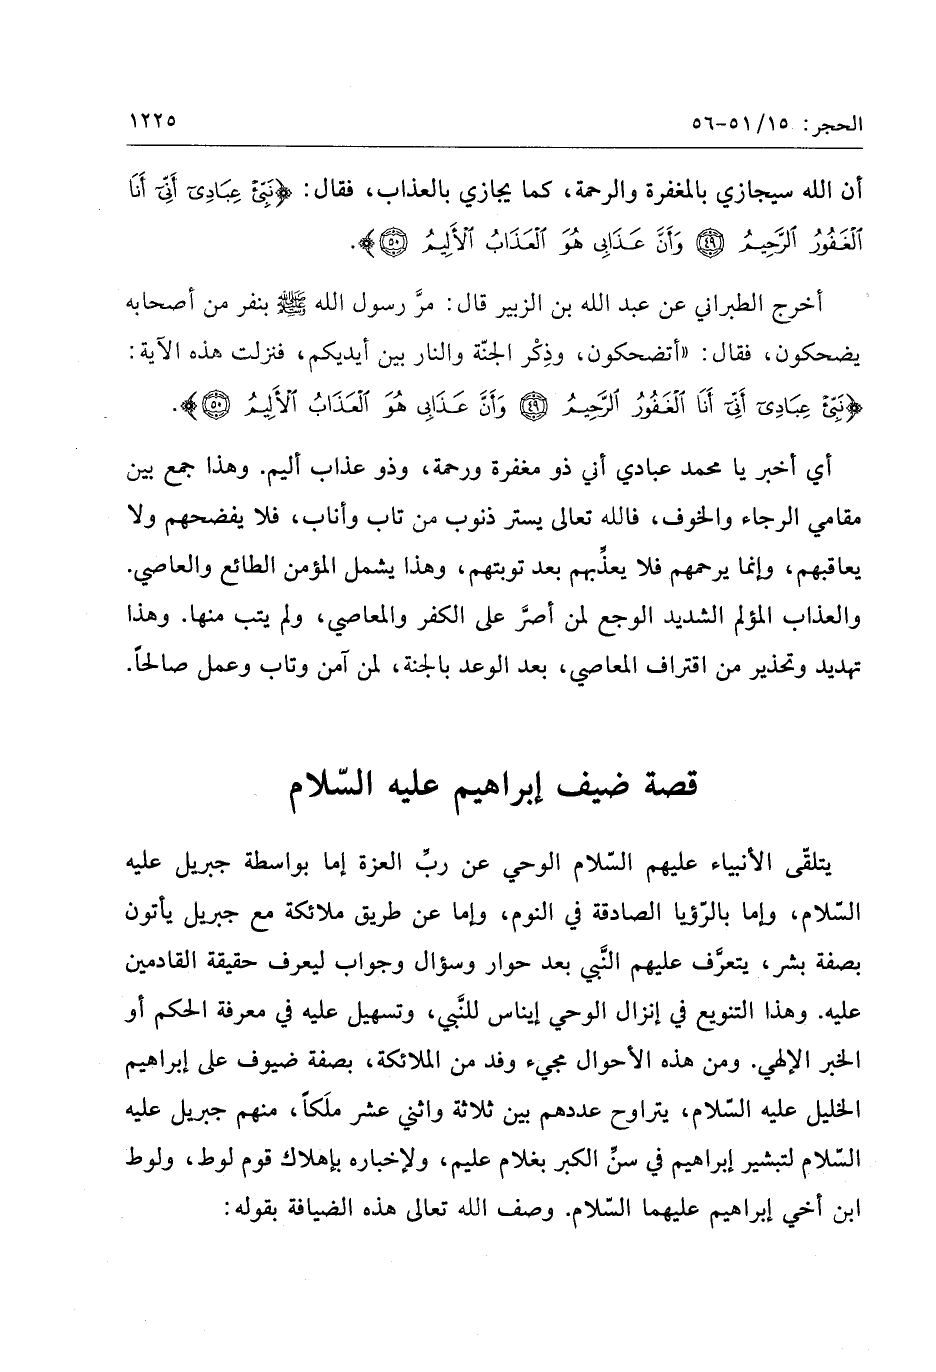 الحجر: ١٥/ ٥١-٥٦
١٢٢٥
أن الله سيجازي بالمغفرة والرحمة، كما يجازي بالعذاب، فقال: ﴿نَبِّئْ عِبَادِىٓ أَنِّىٓ أَنَا
ٱلْغَفُورُ ٱلرَّحِيمُ ٤٩ وَأَنَّ عَذَابِى هُوَ ٱلْعَذَابُ ٱلْأَلِيمُ ٥٠﴾.
أخرج الطبراني عن عبد الله بن الزبير قال: مرَّ رسول الله ﷺ بنفر من أصحابه
يضحكون، فقال: «أتضحكون، وذِكْر الجنّة والنار بين أيديكم، فنزلت هذه الآية:
﴿نَبِّئْ عِبَادِىٓ أَنِّىٓ أَنَا ٱلْغَفُورُ ٱلرَّحِيمُ ٤٩ وَأَنَّ عَذَابِى هُوَ ٱلْعَذَابُ ٱلْأَلِيمُ ٥٠﴾.
أي أخبر يا محمد عبادي أني ذو مغفرة ورحمة، وذو عذاب أليم. وهذا جمع بين
مقامي الرجاء والخوف، فالله تعالى يستر ذنوب من تاب وأناب، فلا يفضحهم ولا
يعاقبهم، وإنما يرحمهم فلا يعذِّبهم بعد توبتهم، وهذا يشمل المؤمن الطائع والعاصي.
والعذاب المؤلم الشديد الوجع لمن أصرَّ على الكفر والمعاصي، ولم يتب منها. وهذا
تهديد وتحذير من اقتراف المعاصي، بعد الوعد بالجنة، لمن آمن وتاب وعمل صالحاً.
قصة ضيف إبراهيم عليه السّلام
يتلقّى الأنبياء عليهم السّلام الوحي عن ربِّ العزة إما بواسطة جبريل عليه
السّلام، وإما بالرّؤيا الصادقة في النوم، وإما عن طريق ملائكة مع جبريل يأتون
بصفة بشر، يتعرَّف عليهم النَّبي بعد حوار وسؤال وجواب ليعرف حقيقة القادمين
عليه. وهذا التنويع في إنزال الوحي إيناس للنَّبي، وتسهيل عليه في معرفة الحكم أو
الخبر الإلهي. ومن هذه الأحوال مجيء وفد من الملائكة، بصفة ضيوف على إبراهيم
الخليل عليه السّلام، يتراوح عددهم بين ثلاثة واثني عشر ملَكاً، منهم جبريل عليه
السّلام لتبشير إبراهيم في سنِّ الكبر بغلام عليم، ولإخباره بإهلاك قوم لوط، ولوط
ابن أخي إبراهيم عليهما السّلام. وصف الله تعالى هذه الضيافة بقوله: